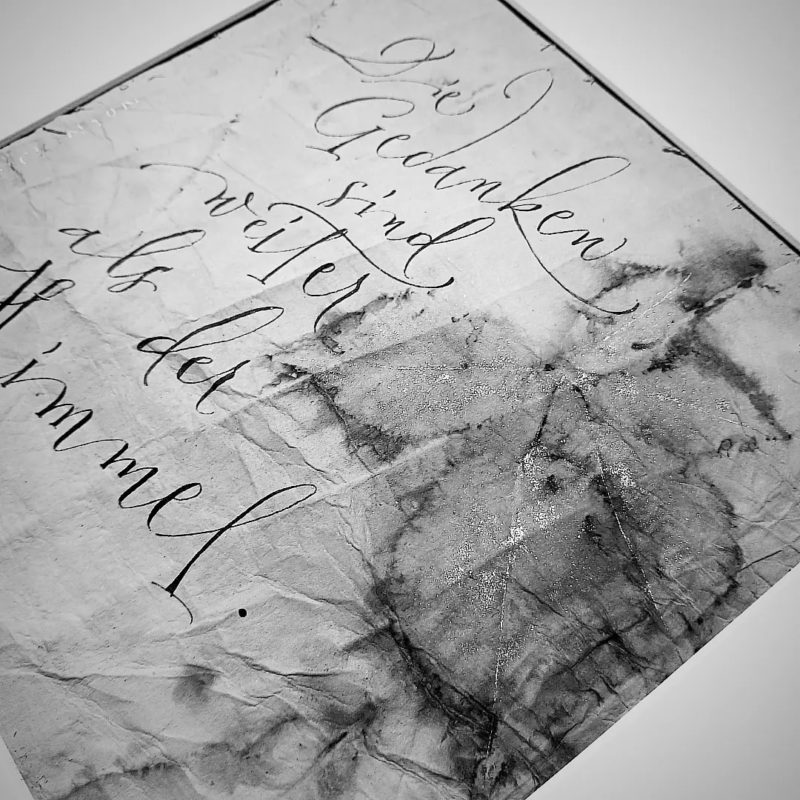 Die
Gedanken
sind
weiter
als der
Himmel.